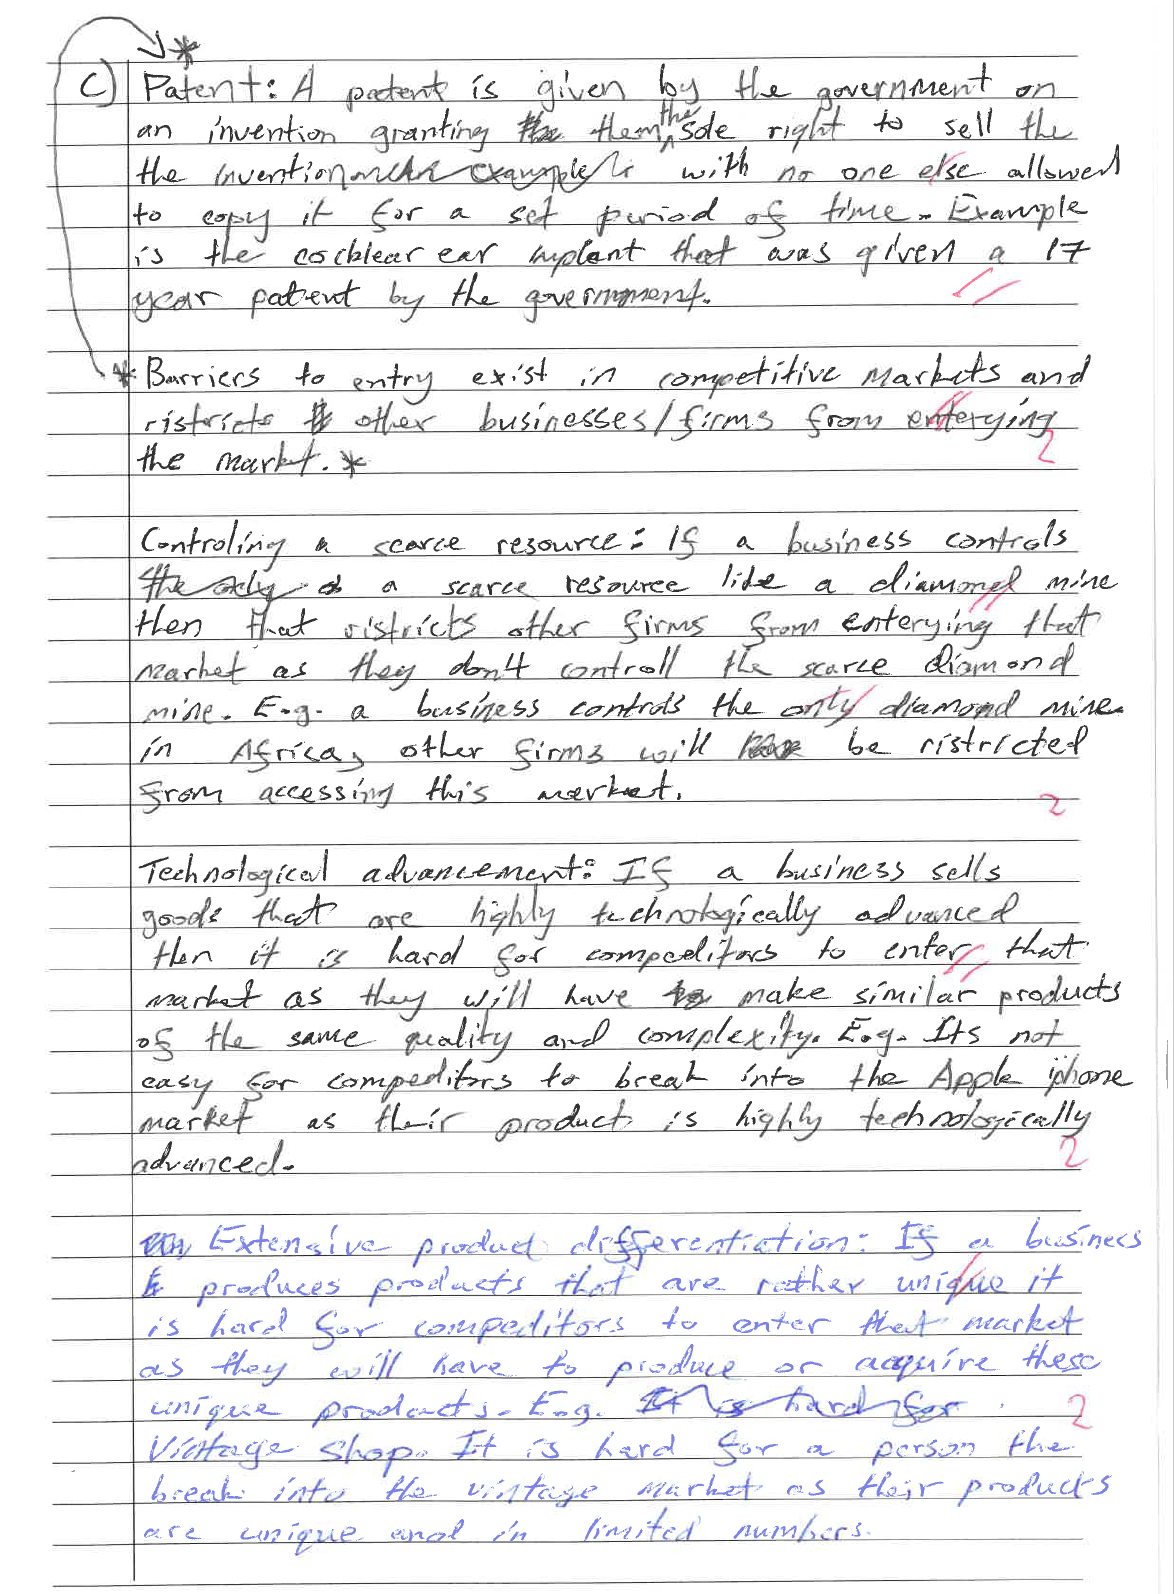 *
c) Patent: A patent is given by the government on
an invention granting them the sole right to sell the
the invention with no one else allowed
to copy it for a set period of time. Example
is the cochlear ear implant that was given a 17
year patent by the government.
* Barriers to entry exist in competitive markets and
ristricts other businesses/firms from enterying
2
the market. *
Controling a scarce resource: If a business controls
a scarce resource like a diamond mine
then that ristricts other firms from enterying that
market as they don't controll the scarce diamond
mine. E.g. a business controls the only diamond mine
in Africa, other firms will be ristricted
from accessing this market.
2
Technological advancement: If a business sells
goods that are highly technologically advanced
then it is hard for compeditors to enter that
market as they will have to make similar products
of the same quality and complexity. E.g. Its not
easy for compeditors to break into the Apple iphone
market as their product is highly technologically
2
advanced.
Extensive product differentiation: If a business
produces products that are rather unique it
is hard for compeditors to enter that market
as they will have to produce or acquire these
unique products. E.g.
2
Vintage Shop. It is hard for a person the
break into the vintage market as their products
are unique and in limited numbers.